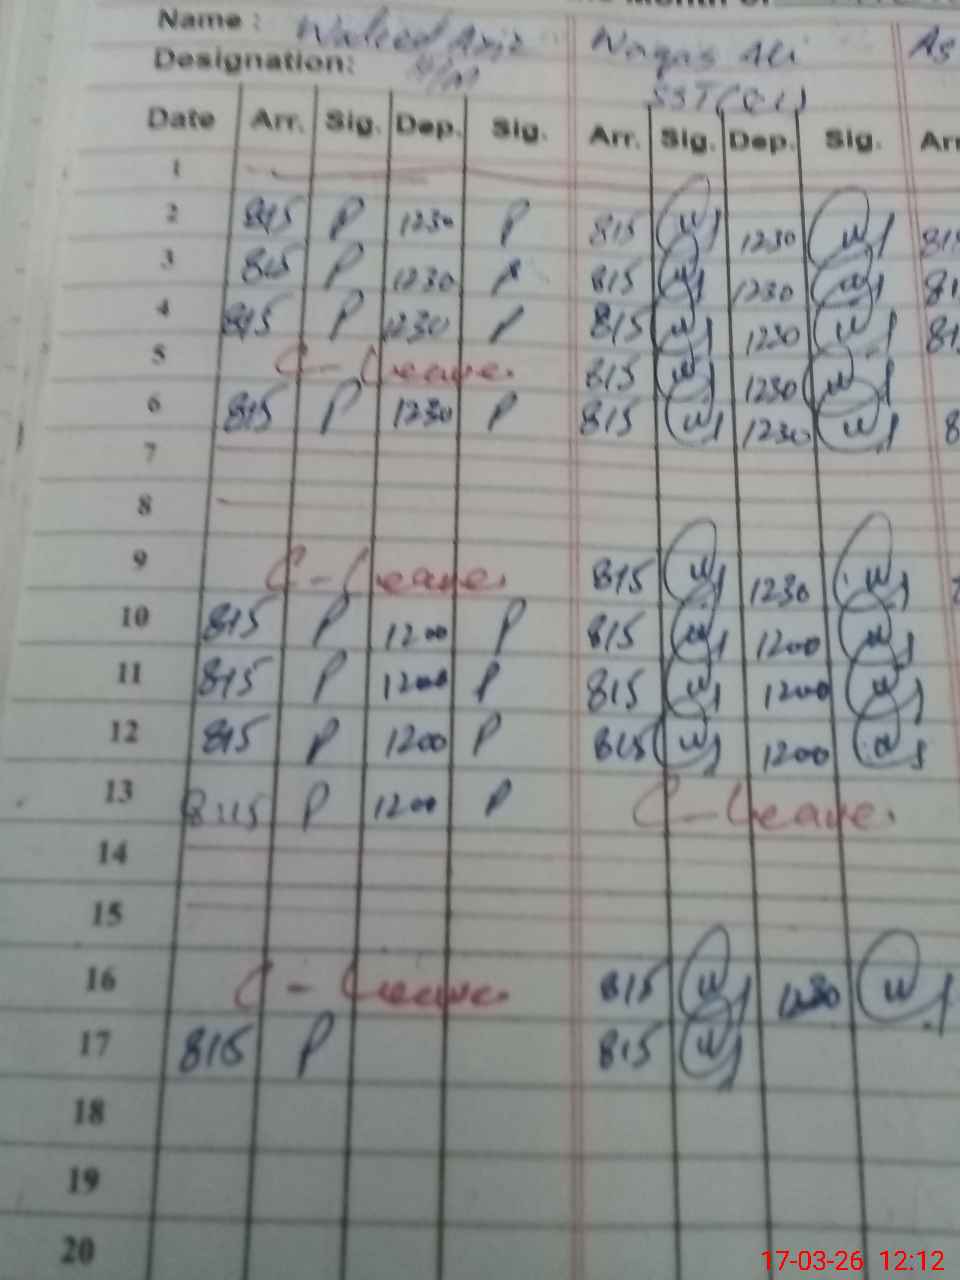 Name: Waleed Aziz Waqas Ali As
Designation: H/M SST(CL)
Date Arr. Sig. Dep. Sig. Arr. Sig. Dep. Sig. Arr
1
2 815 P 1230 P 815 1230 815
3 815 P 1230 P 815 1230 81
4 815 P 1230 P 815 1230 81
5 C-Leave. 815 1230
6 815 P 1230 P 815 1230 8
7
8
9 C-Leave. 815 1230
10 815 P 1200 P 815 1200
11 815 P 1200 P 815 1200
12 815 P 1200 P 815 1200
13 8:15 P 1200 P C-Leave.
14
15
16 C-Leave. 815 1230
17 815 P 815
18
19
20
17-03-26 12:12